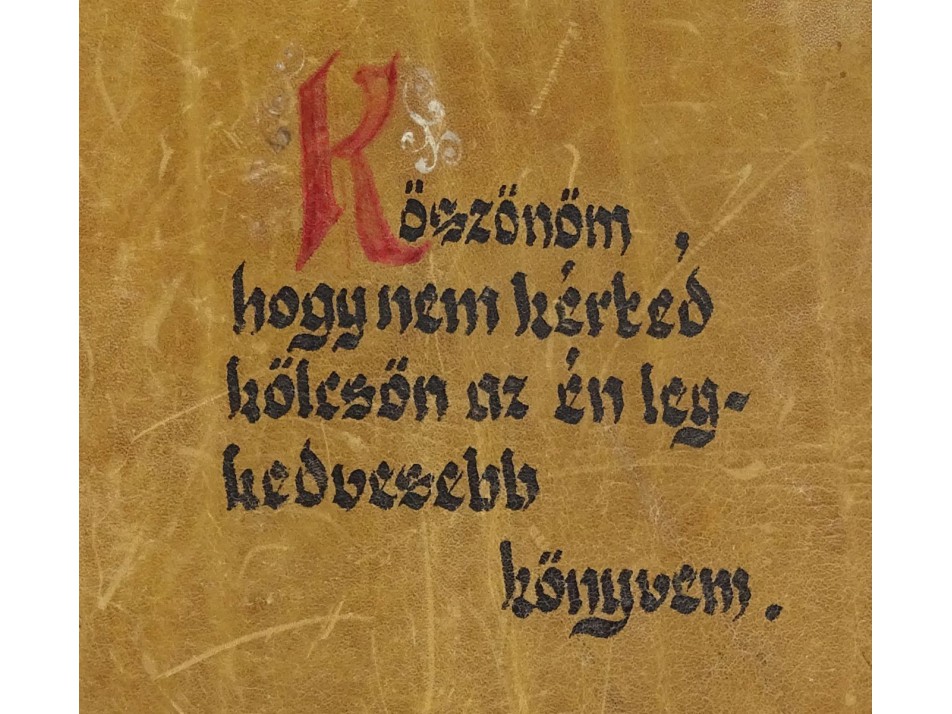 Köszönöm ,
hogy nem kérted
kölcsön az én leg-
kedvesebb
könyvem .